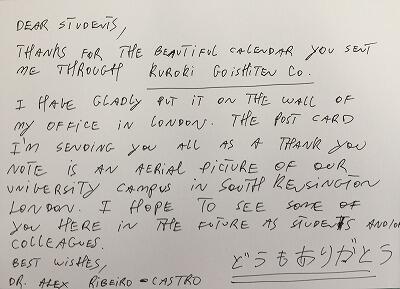 DEAR STUDENTS,
THANKS FOR THE BEAUTIFUL CALENDAR YOU SENT
ME THROUGH KUROKI GOISHITEN CO.
I HAVE GLADLY PUT IT ON THE WALL OF
MY OFFICE IN LONDON. THE POST CARD
I'M SENDING YOU ALL AS A THANK YOU
NOTE IS AN AERIAL PICTURE OF OUR
UNIVERSITY CAMPUS IN SOUTH KENSINGTON
LONDON. I HOPE TO SEE SOME OF
YOU HERE IN THE FUTURE AS STUDENTS AND/OR
COLLEAGUES.
BEST WISHES,
どうもありがとう
DR. ALEX RIBEIRO-CASTRO